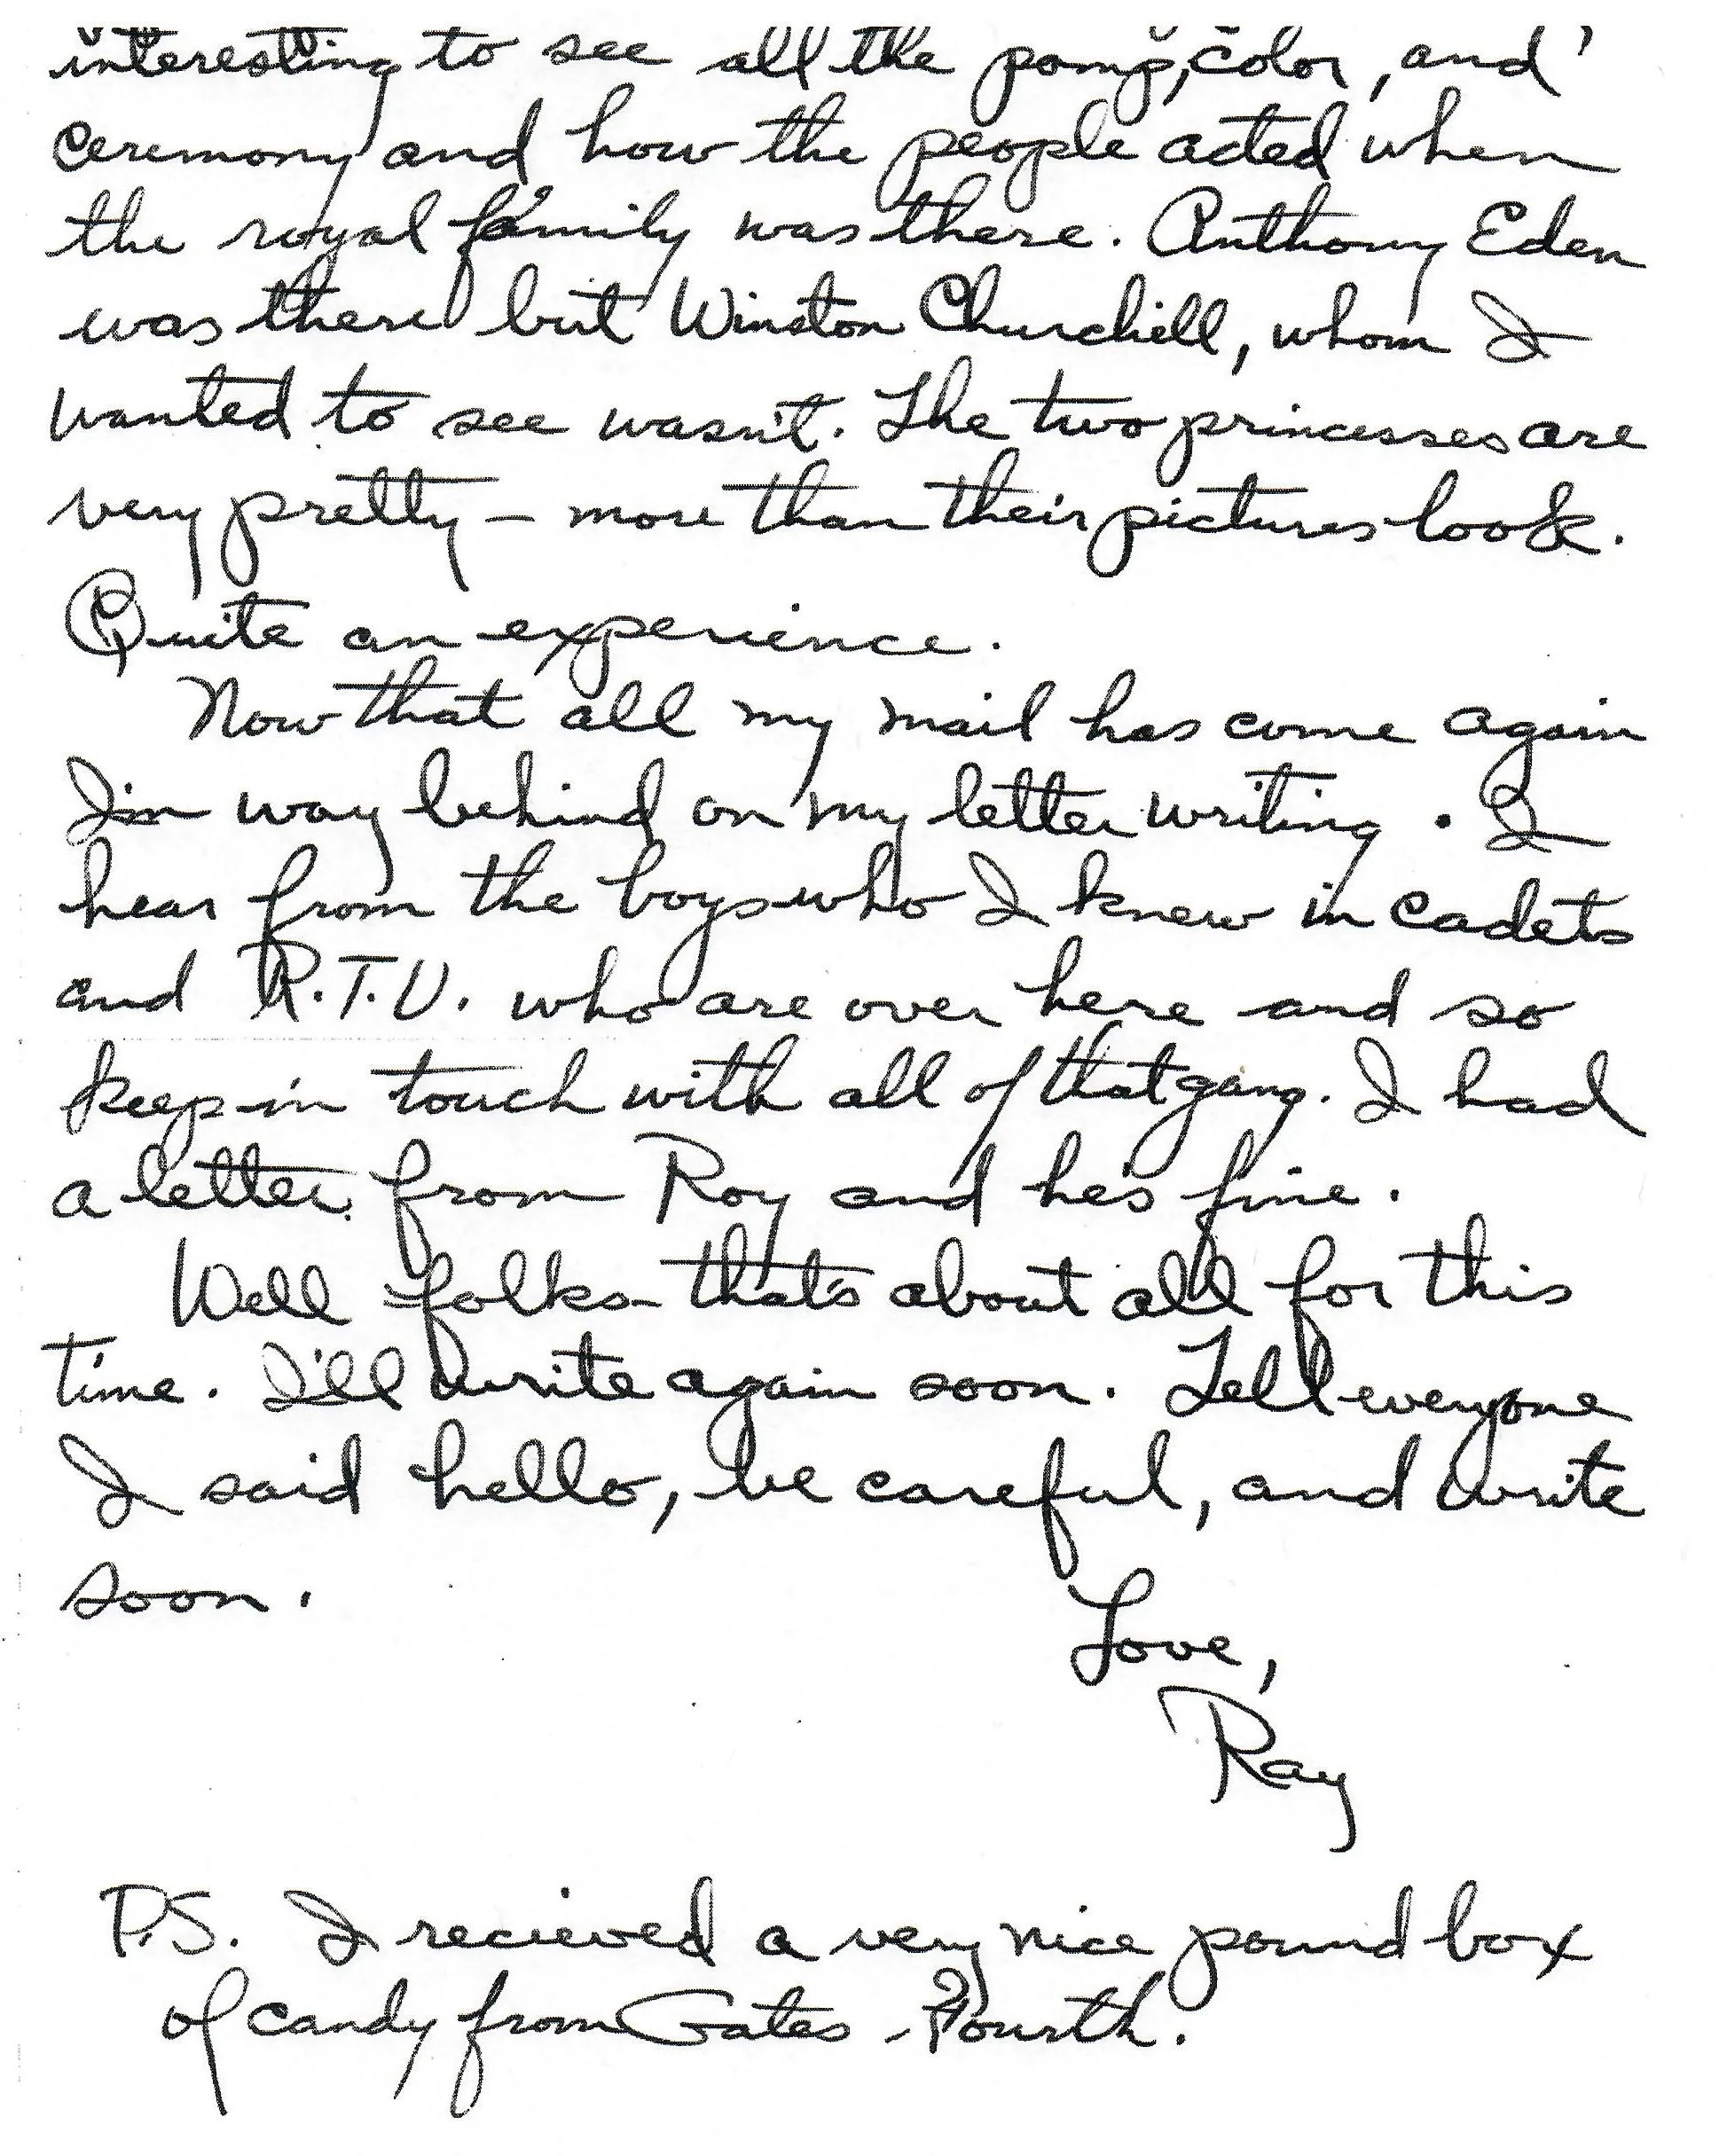 interesting to see all the pomp, color, and
ceremony and how the people acted when
the royal family was there. Anthony Eden
was there but Winston Churchill, whom I
wanted to see wasn't. The two princesses are
very pretty – more than their pictures look.
Quite an experience.
Now that all my mail has come again
I'm way behind on my letter writing. I
hear from the boys who I knew in cadets
and R.T.U. who are over here and so
keep in touch with all of that gang. I had
a letter from Roy and he's fine.
Well folks – that's about all for this
time. I'll write again soon. Tell everyone
I said hello, be careful, and write
soon.
Love,
Ray
P.S. I recieved a very nice pound box
of candy from Gates - Fourth.